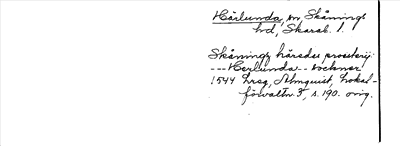 Härlunda, sn, Skånings
hd, Skarab. l.
Skåningz häradz prosterij:
--- Herlunda -- sochner
1544 hrsg, Almquist, Lokal-
förvaltn 3, s. 190. orig.